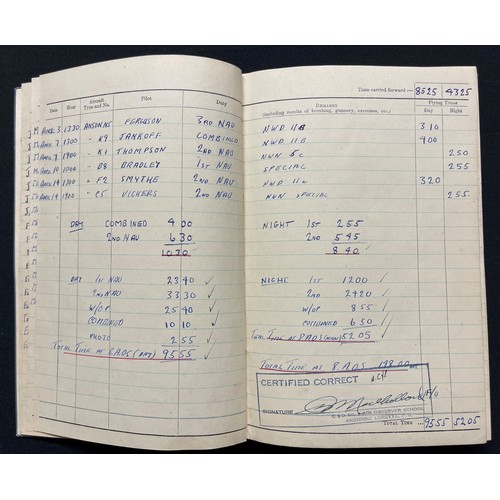 Time carried forward :— 8525 4325
Date Hour Aircraft Type and No. Pilot Duty
REMARKS (including results of bombing, gunnery, exercises, etc.) Flying Times Day Night
APRIL 3 1330 ANSON FERGUSON 3RD NAV NWD 11B 3 10
APRIL 7 1300 " K9 JANKOFF COMBINED NWD 11B 4 00
APRIL 7 1900 " K1 THOMPSON 2ND NAV NWN 5C 2 50
APRIL 10 B8 BRADLEY 1ST NAV SPECIAL 2 55
APRIL 14 1300 " F2 SMYTHE 2ND NAV 3 20
APRIL 14 1900 " C5 VICKERS 2ND NAV NWN SPECIAL 2 55
DAY COMBINED 4 00
2ND NAV 6 30
10 30
NIGHT 1ST 2 55
2ND 5 45
8 40
DAY 1ST NAV 23 40
2ND NAV 33 30
W/OP 25 40
COMBINED 10 10
PHOTO 2 55
TOTAL TIME AT 8 AOS (DAY) 95 55
NIGHT 1ST 12 00
2ND 24 20
W/OP 8 55
COMBINED 6 50
TOTAL TIME AT 8 AOS 52 05
TOTAL TIME AT 8 AOS 148.00
CERTIFIED CORRECT
SIGNATURE
OBSERVER SCHOOL
ANCIENNE LORETTE, P.Q.
TOTAL TIME ... 95 55 52 05